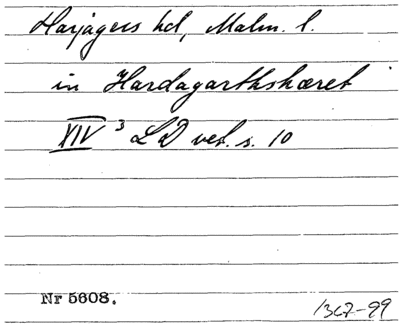 Harjagers hd, Malm. l.
in Hardagarthshæret
XIV 3 LD vet. s. 10
Nr 5608.
1367-99